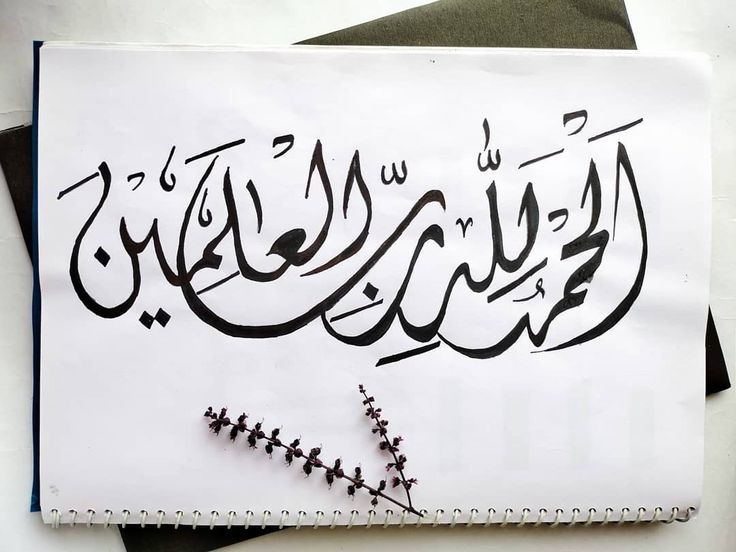 الْحَمْدُ لِلَّهِ رَبِّ الْعَلَمِينَ